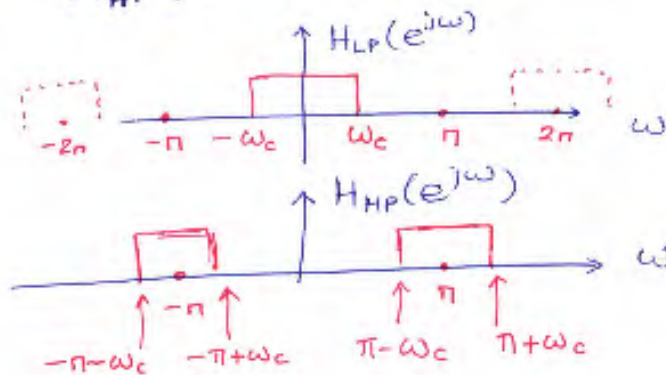 H_LP(e^jω)
-2π -π -ω_c ω_c π 2π ω
H_HP(e^jω)
-π π ω
-π-ω_c -π+ω_c π-ω_c π+ω_c